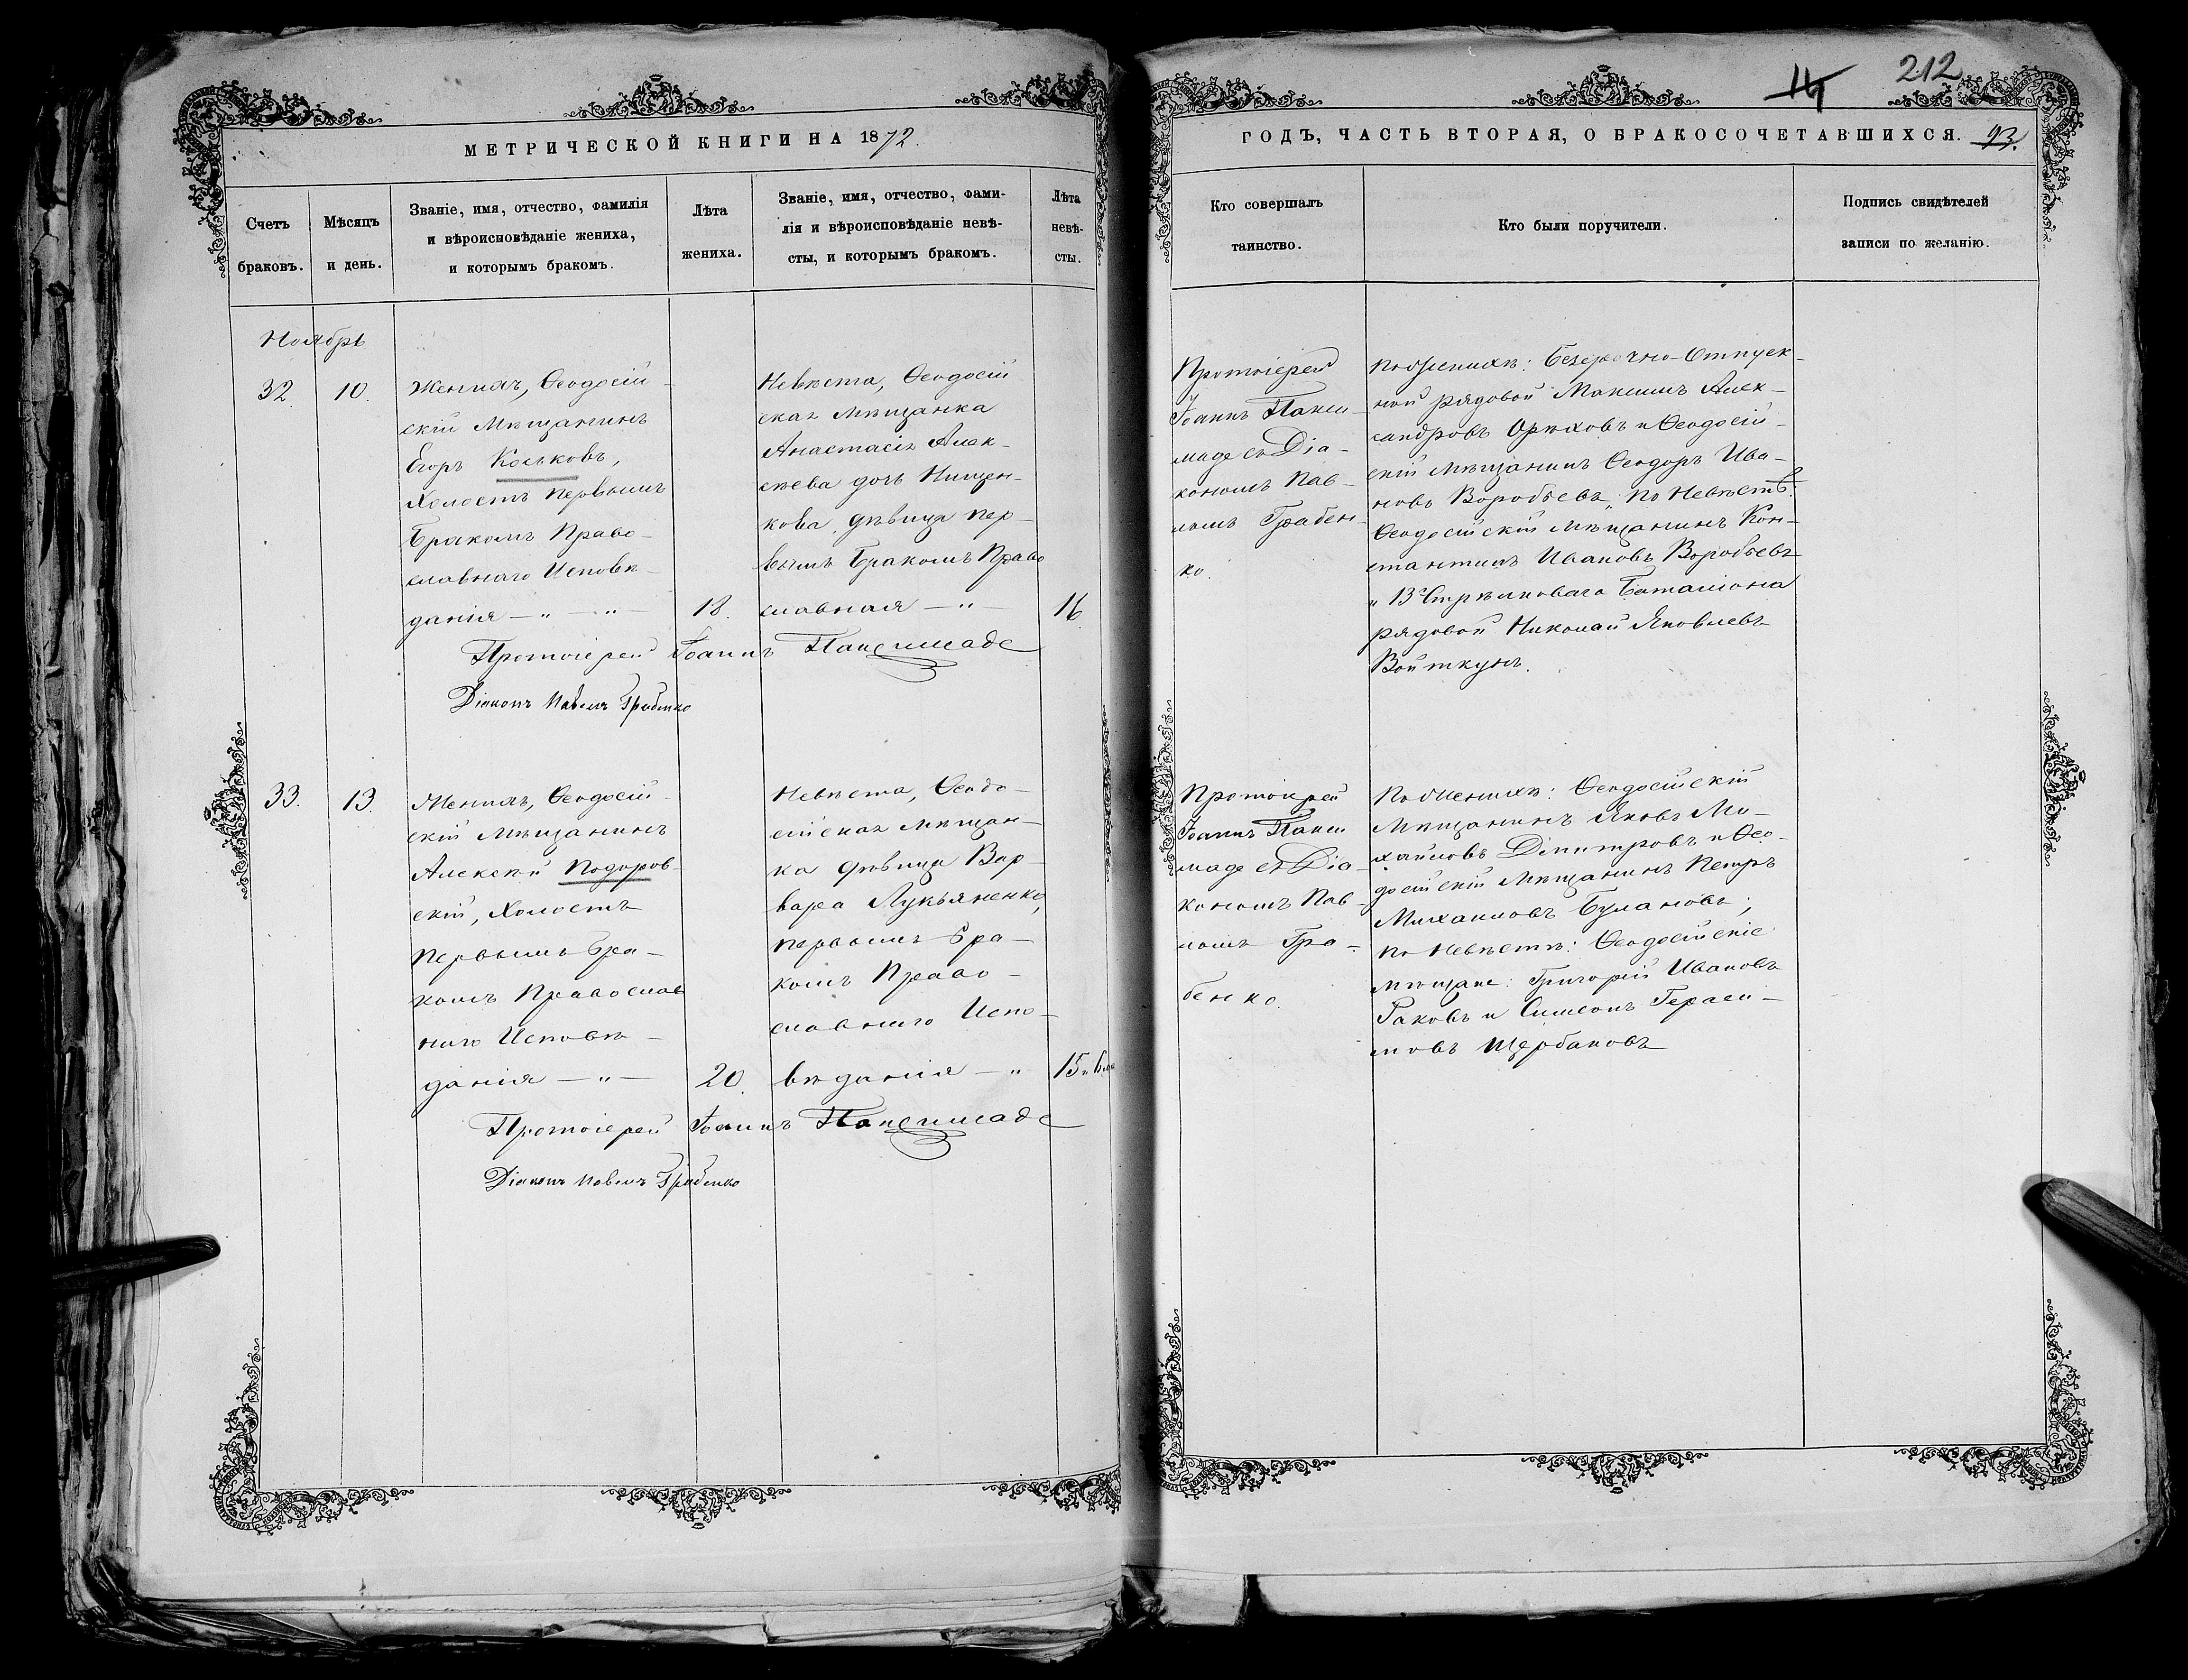 212
14
МЕТРИЧЕСКОЙ КНИГИ НА 1872.
ГОДЪ, ЧАСТЬ ВТОРАЯ, О БРАКОСОЧЕТАВШИХСЯ. 93.
Счетъ
браковъ.
Мѣсяцъ
и день.
Званіе, имя, отчество, фамилія
и вѣроисповѣданіе жениха,
и которымъ бракомъ.
Лѣта
жениха.
Званіе, имя, отчество, фами-
лія и вѣроисповѣданіе невѣ-
сты, и которымъ бракомъ.
Лѣта
невѣ-
сты.
Кто совершалъ
таинство.
Кто были поручители.
Подпись свидѣтелей
записи по желанію.
Ноябрь
32.
10.
Женихъ, Ѳеодосій-
скій Мѣщанинъ
Егоръ Коськовъ,
Холостъ первымъ
Бракомъ Право-
славнаго Исповѣ-
данія — „ — „ —
18.
Невѣста, Ѳеодосій
ская Мѣщанка
Анастасія Алек-
сѣева дочь Нищен-
кова, дѣвица пер-
вымъ Бракомъ Право
славная — „ —
16
Протоіерей Іоаннъ Пакси
маде съ Діа-
кономъ Пав-
ломъ Грабен-
ко.
По Женихѣ: Безсрочно-Отпуск-
ной рядовой Максимъ Алек-
сандровъ Орѣховъ и Ѳеодосій-
скій Мѣщанинъ Ѳеодоръ Ива-
новъ Воробьевъ, по Невѣстѣ:
Ѳеодосійскій Мѣщанинъ Кон-
стантинъ Ивановъ Воробьевъ
и 13го Стрѣлковаго Баталіона
рядовой Николай Яковлевъ
Войткунъ.
Протоіерей Іоаннъ Паксимаде
Діаконъ Павелъ Грабенко
33.
13.
Женихъ, Ѳеодосій-
скій Мѣщанинъ
Алексѣй Подоров-
скій, Холостъ
первымъ Бра-
комъ Православ
наго Исповѣ-
данія — „ —
20.
Невѣста, Ѳеодо-
сійская Мѣщан-
ка дѣвица Вар-
вара Лукьяненко,
первымъ Бра-
комъ Право-
славнаго Испо-
вѣданія — „
15 и 6 м.
Протоіерей
Іоаннъ Пакси
маде съ Діа-
кономъ Пав-
ломъ Гра-
бенко.
По Женихѣ: Ѳеодосійскій
Мѣщанинъ Яковъ Ми-
хайловъ Димитровъ и Ѳео-
досійскій Мѣщанинъ Петръ
Михаиловъ Булановъ;
по Невѣстѣ: Ѳеодосійскіе
мѣщане: Григорій Ивановъ
Раковъ и Симеонъ Гераси-
мовъ Щербаковъ
Протоіерей Іоаннъ Паксимаде
Діаконъ Павелъ Грабенко